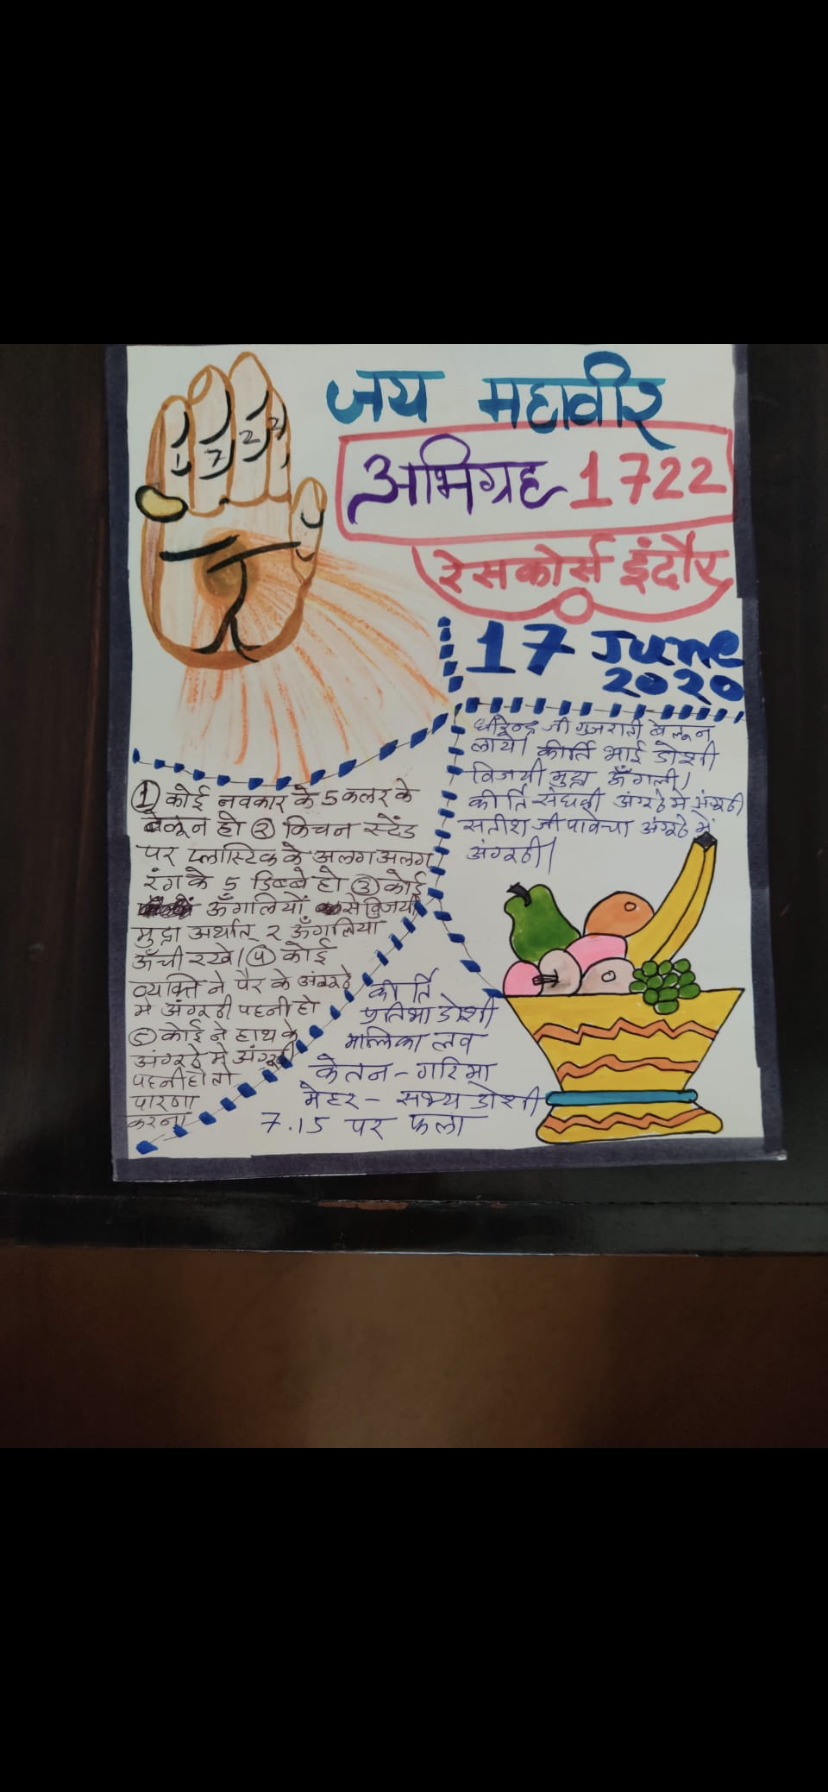 जय महावीर
अभिग्रह 1722
रेसकोर्स इंदौर
1 7 2 2
17 June
2020
धीरेन्द्र जी गुजराती बेलून
लाये। कीर्ति भाई डोशी
विजयी मुद्रा ऊँगली।
कीर्ति संघवी अंगूठे मे अंगूठी
सतीश जी पावेचा अंगूठे में
अंगूठी।
① कोई नवकार के 5 कलर के
बेलून हो ② किचन स्टेंड
पर प्लास्टिक के अलग अलग
रंग के 5 डिब्बे हो ③ कोई
ऊँगलियों से विजयी
मुद्रा अर्थात् २ ऊँगलिया
ऊँची रखे। ④ कोई
व्यक्ति ने पैर के अंगूठे
मे अंगूठी पहनी हो
⑤ कोई ने हाथ के
अंगूठे मे अंगूठी
पहनी हो तो
पारणा
करना
कीर्ति
प्रतिभा डोशी
मल्लिका लव
केतन - गरिमा
मेहर - सभ्य डोशी
7.15 पर फला